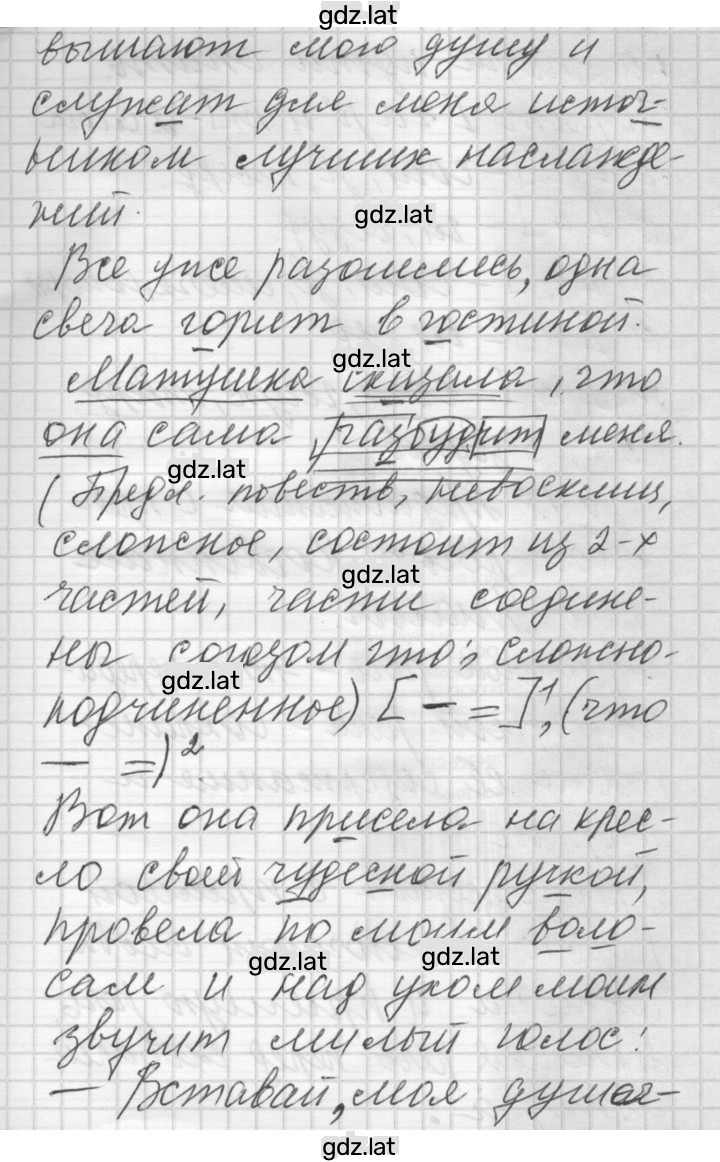 gdz.lat
вышают мою душу и
служат для меня источ-
ником лучших наслажде-
ний.
gdz.lat
Все уже разошлись, одна
свеча горит в гостиной.
gdz.lat
Матушка сказала, что
она сама разбудит меня.
gdz.lat
(Предл. повеств, невосклиц,
сложное, состоит из 2-х
gdz.lat
частей, части соедине-
ны союзом что; сложно-
gdz.lat
подчиненное) [ – = ]¹, (что
— =)².
Вот она присела на крес-
ло своей чудесной ручкой,
провела по моим воло-
gdz.lat gdz.lat
сам и над ухом моим
звучит милый голос:
— Вставай, моя душеч-
gdz.lat